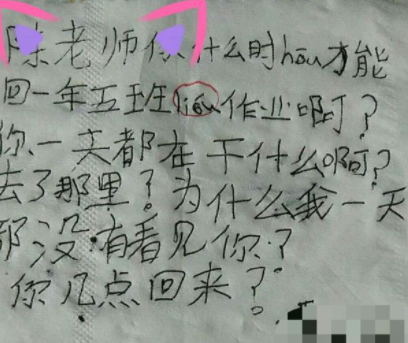 陈老师你什么时hòu才能
回一年五班liòu作业啊？
你、一天都在干什么啊？
去了那里？为什么我一天
都没有看见你？
你几点回来？